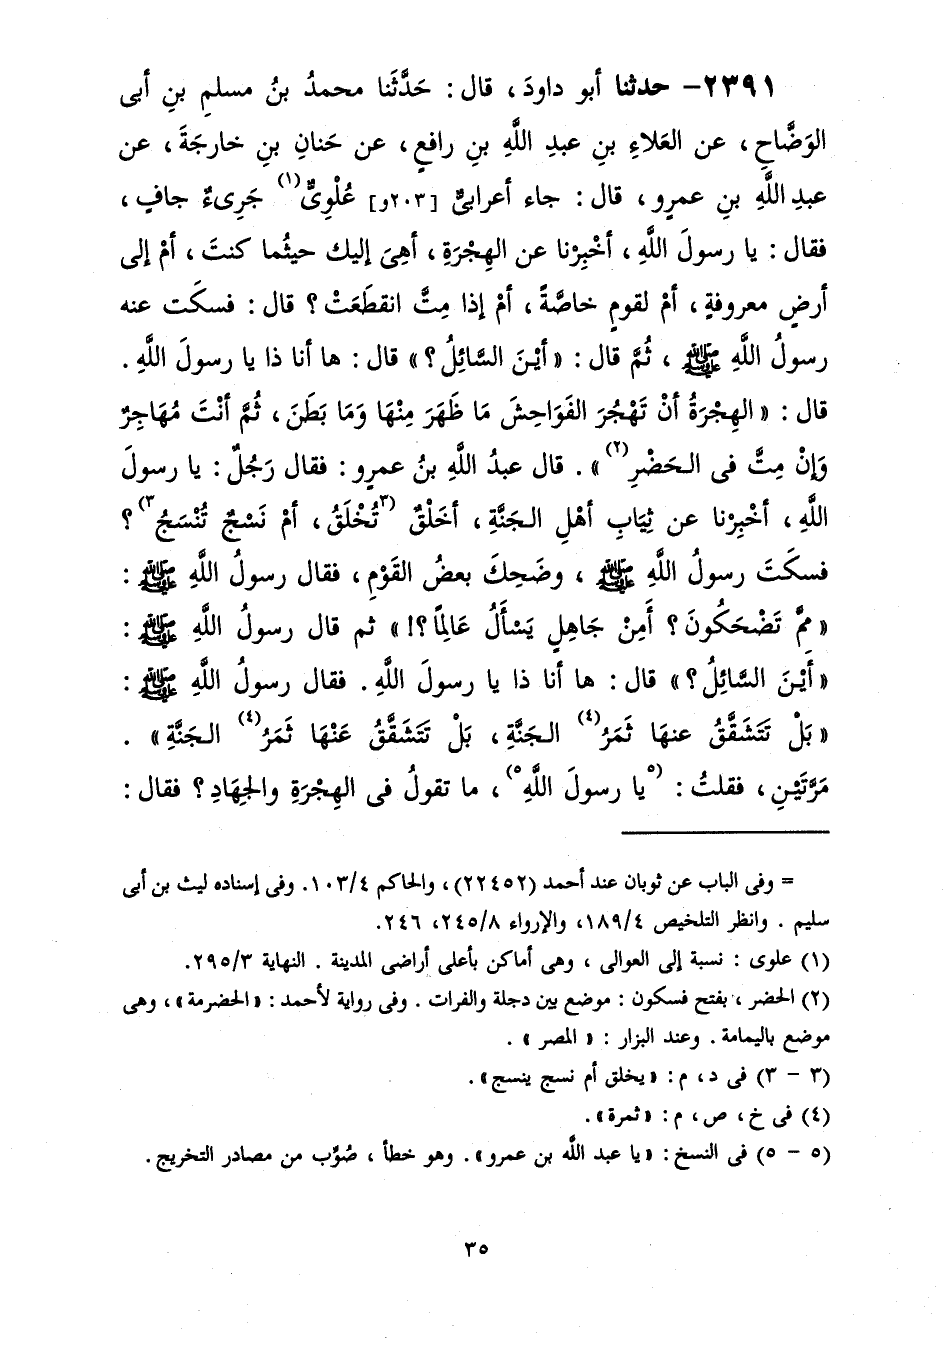 ٢٣٩١- حدثنا أبو داودَ ، قال : حَدَّثَنا محمدُ بنُ مسلمِ بنِ أبى
الوَضَّاحِ ، عن العَلاءِ بنِ عبدِ اللَّهِ بنِ رافعٍ ، عن حَنانِ بنِ خارجَةَ ، عن
عبدِ اللَّهِ بنِ عمرٍو ، قال : جاء أعرابىٌّ [٢٠٣و] عُلْوِىٌّ(١) جَرِىءٌ جافٍ ،
فقال : يا رسولَ اللَّهِ ، أخْبِرْنا عن الهِجْرَةِ ، أهِىَ إليك حيثُما كنتَ ، أمْ إلى
أرضٍ معروفةٍ ، أمْ لقومٍ خاصَّةً ، أمْ إذا مِتَّ انقطَعَتْ ؟ قال : فسكَت عنه
رسولُ اللَّهِ ﷺ ، ثُمَّ قال : « أيْنَ السَّائِلُ ؟ » قال : ها أنا ذا يا رسولَ اللَّهِ .
قال : « الهِجْرَةُ أنْ تَهْجُرَ الفَوَاحِشَ مَا ظَهَرَ مِنْهَا وَمَا بَطَنَ ، ثُمَّ أنْتَ مُهَاجِرٌ
وَإنْ مِتَّ فى الحَضْرِ(٢) » . قال عبدُ اللَّهِ بنُ عمرٍو : فقال رَجُلٌ : يا رسولَ
اللَّهِ ، أخْبِرْنا عن ثِيَابِ أهْلِ الجَنَّةِ ، أخَلْقٌ (٣تُخْلَقُ ، أمْ نَسْجٌ تُنْسَجُ٣) ؟
فسكَتَ رسولُ اللَّهِ ﷺ ، وضَحِكَ بعضُ القَوْمِ ، فقال رسولُ اللَّهِ ﷺ :
« مِمَّ تَضْحَكُونَ ؟ أَمِنْ جَاهِلٍ يَسْأَلُ عَالِمًا ؟! » ثم قال رسولُ اللَّهِ ﷺ :
« أَيْنَ السَّائِلُ ؟ » قال : ها أنا ذا يا رسولَ اللَّهِ . فقال رسولُ اللَّهِ ﷺ :
« بَلْ تَتَشَقَّقُ عنهَا ثَمَرُ(٤) الجَنَّةِ ، بَلْ تَتَشَقَّقُ عَنْهَا ثَمَرُ(٤) الجَنَّةِ » .
مَرَّتَيْنِ ، فقلتُ : (٥يا رسولَ اللَّهِ٥) ، ما تقولُ فى الهِجْرَةِ والجِهَادِ ؟ فقال :
= وفى الباب عن ثوبان عند أحمد (٢٢٤٥٢) ، والحاكم ١٠٣/٤. وفى إسناده ليث بن أبى
سليم . وانظر التلخيص ١٨٩/٤، والإرواء ٢٤٥/٨، ٢٤٦.
(١) علوى : نسبة إلى العوالى ، وهى أماكن بأعلى أراضى المدينة . النهاية ٢٩٥/٣.
(٢) الحضر ، بفتح فسكون : موضع بين دجلة والفرات . وفى رواية لأحمد : «الحضرمة» ، وهى
موضع باليمامة . وعند البزار : « المصر » .
(٣ - ٣) فى د ، م : «يخلق أم نسج ينسج» .
(٤) فى خ ، ص ، م : «ثمرة» .
(٥ - ٥) فى النسخ : «يا عبد اللَّه بن عمرو» . وهو خطأ ، صُوِّب من مصادر التخريج .
٣٥